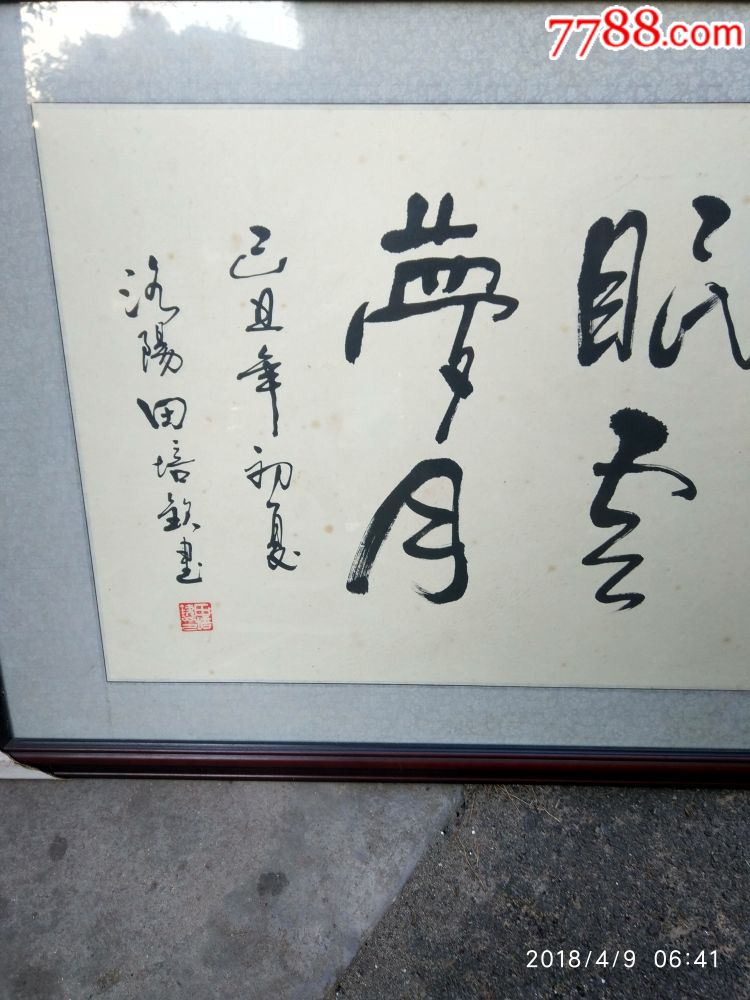 7788.com
眠云
夢月
己丑年初夏
洛陽田培欽書
2018/4/9 06:41